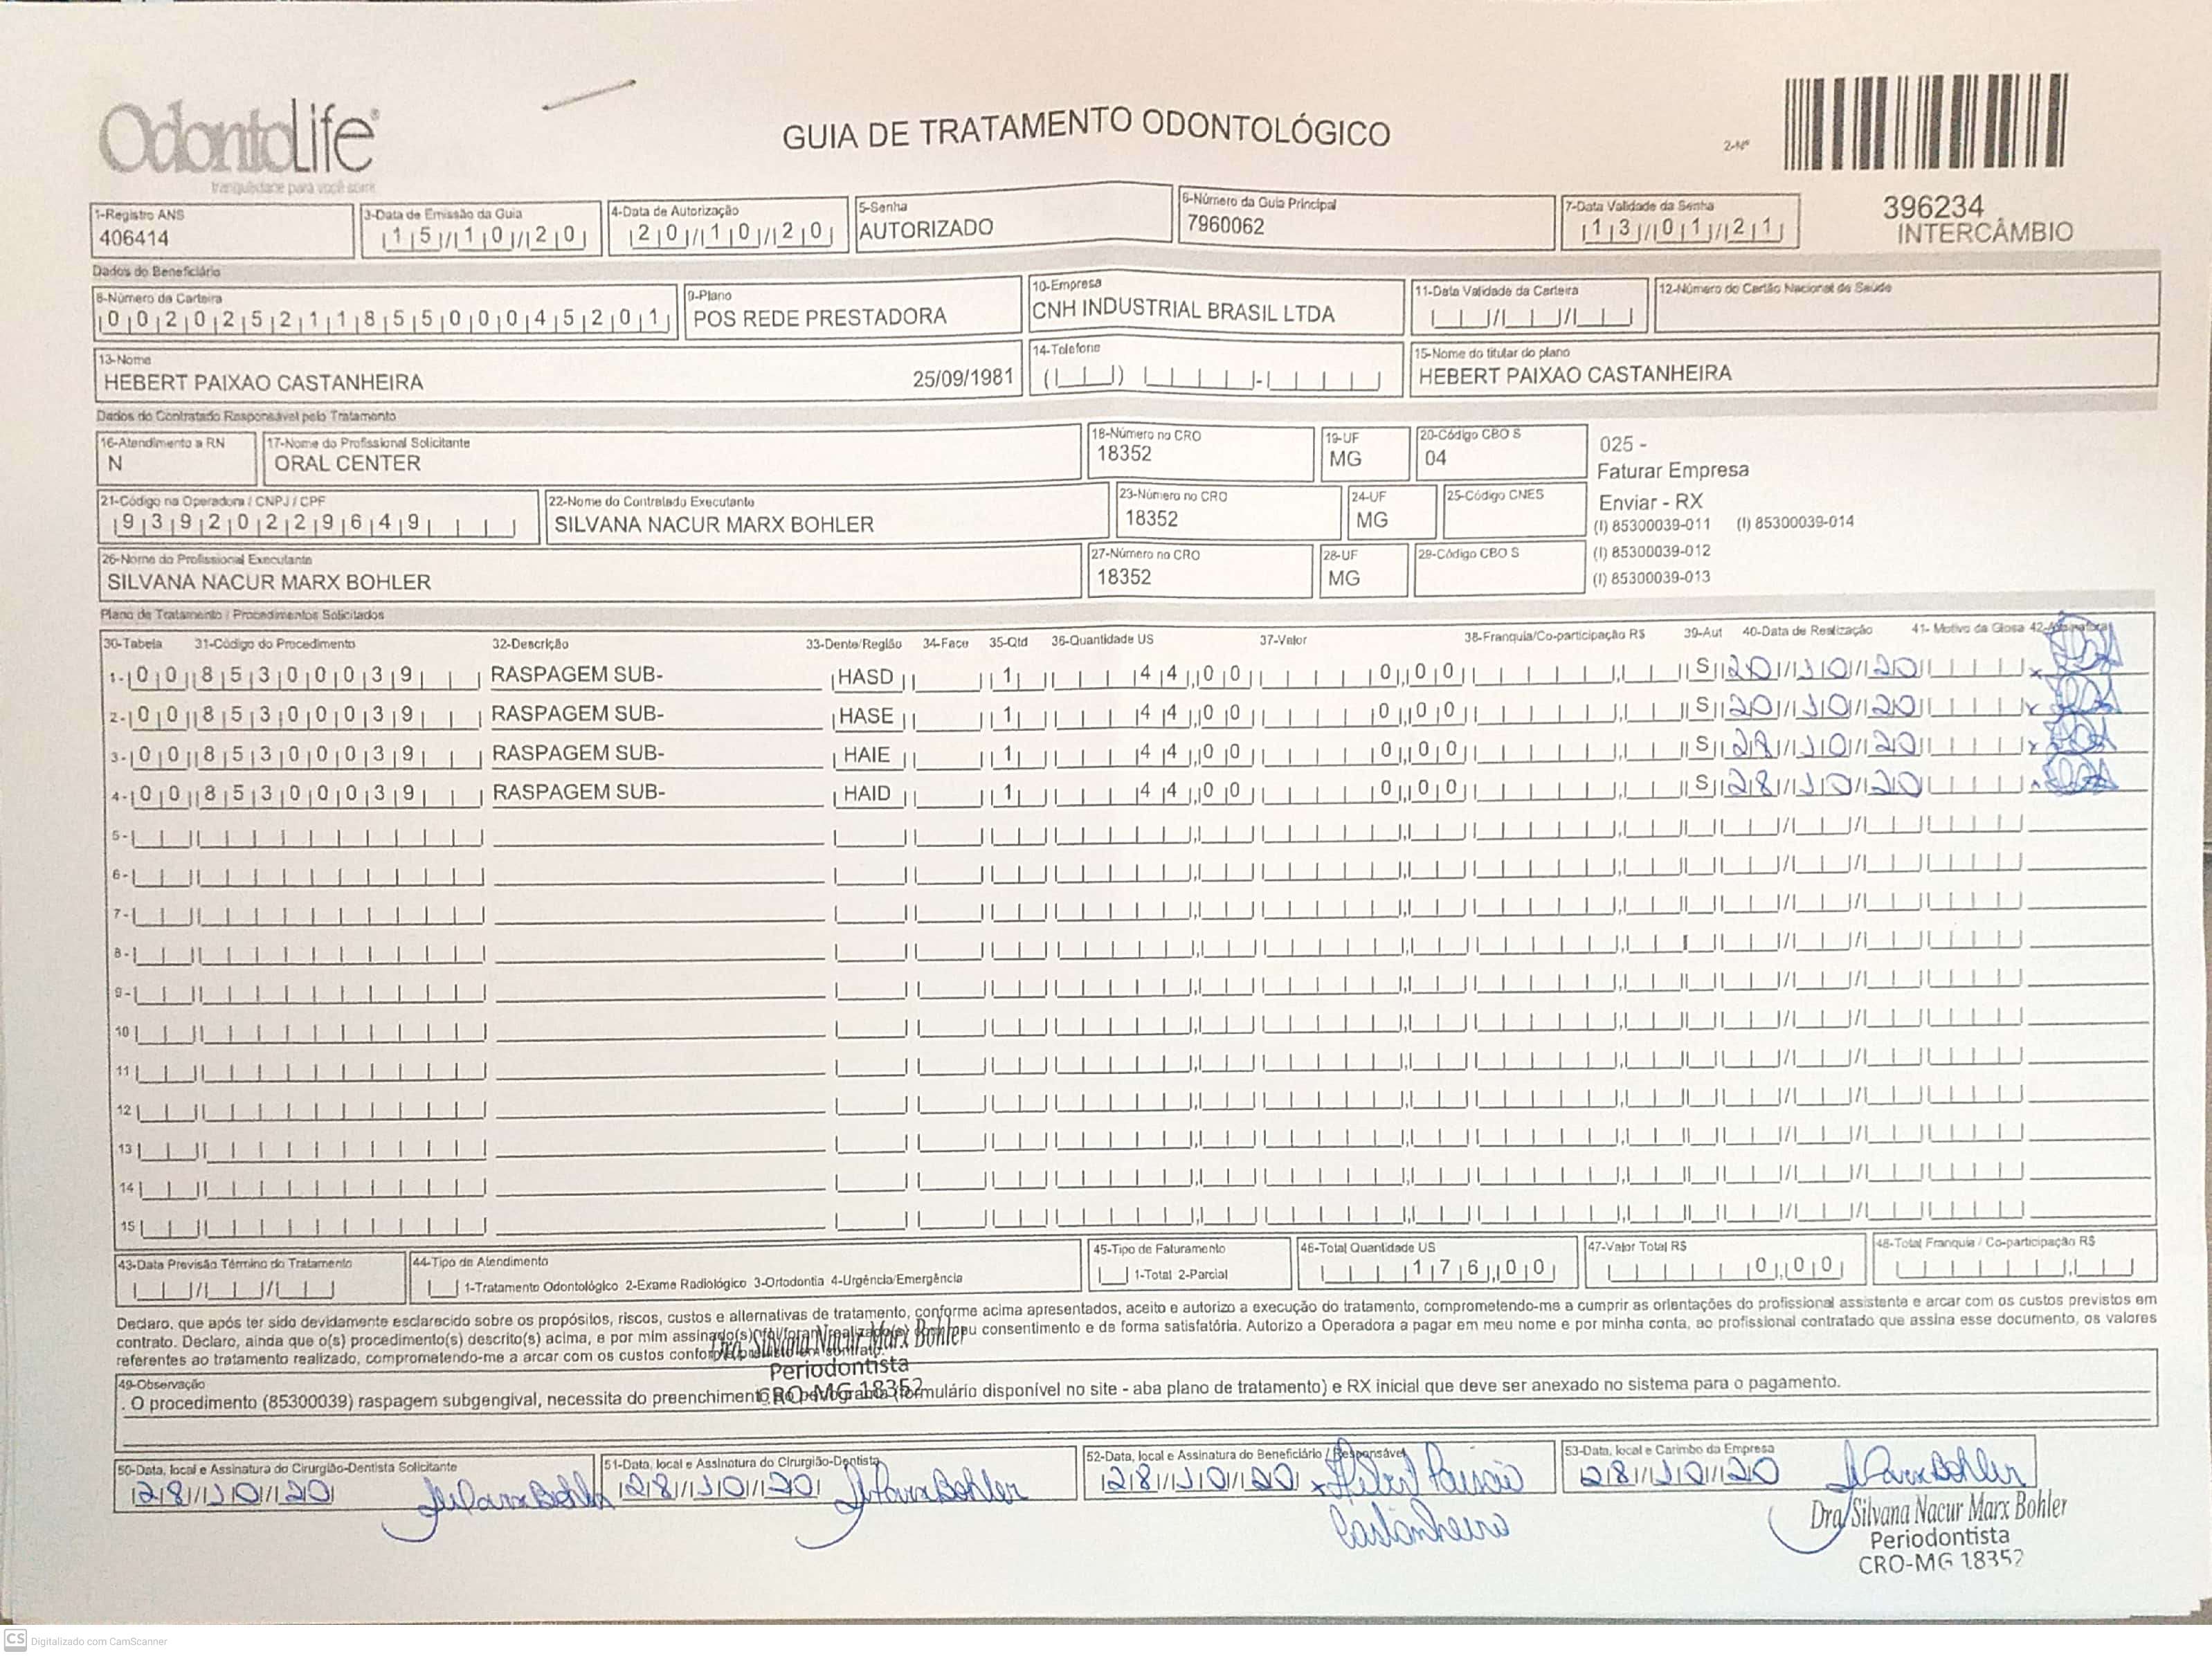 OdontoLife®
tranquilidade para você sorrir
GUIA DE TRATAMENTO ODONTOLÓGICO
2-Nº
396234
INTERCÂMBIO
1-Registro ANS
406414
3-Data de Emissão da Guia
15/10/20
4-Data de Autorização
20/10/20
5-Senha
AUTORIZADO
6-Número da Guia Principal
7960062
7-Data Validade da Senha
13/01/21
Dados do Beneficiário
8-Número da Carteira
00202521185500045201
9-Plano
POS REDE PRESTADORA
10-Empresa
CNH INDUSTRIAL BRASIL LTDA
11-Data Validade da Carteira
12-Número do Cartão Nacional de Saúde
13-Nome
HEBERT PAIXAO CASTANHEIRA 25/09/1981
14-Telefone
15-Nome do titular do plano
HEBERT PAIXAO CASTANHEIRA
Dados do Contratado Responsável pelo Tratamento
16-Atendimento a RN
N
17-Nome do Profissional Solicitante
ORAL CENTER
18-Número no CRO
18352
19-UF
MG
20-Código CBO S
04
025 -
Faturar Empresa
Enviar - RX
(I) 85300039-011 (I) 85300039-014
(I) 85300039-012
(I) 85300039-013
21-Código na Operadora / CNPJ / CPF
93920229649
22-Nome do Contratado Executante
SILVANA NACUR MARX BOHLER
23-Número no CRO
18352
24-UF
MG
25-Código CNES
26-Nome do Profissional Executante
SILVANA NACUR MARX BOHLER
27-Número no CRO
18352
28-UF
MG
29-Código CBO S
Plano de Tratamento / Procedimentos Solicitados
30-Tabela 31-Código do Procedimento 32-Descrição 33-Dente/Região 34-Face 35-Qtd 36-Quantidade US 37-Valor 38-Franquia/Co-participação R$ 39-Aut 40-Data de Realização 41- Motivo da Glosa 42-Assinatura
1- 00 85300039 RASPAGEM SUB- HASD 1 44,00 0,00 S 20/10/20
2- 00 85300039 RASPAGEM SUB- HASE 1 44,00 0,00 S 20/10/20
3- 00 85300039 RASPAGEM SUB- HAIE 1 44,00 0,00 S 28/10/20
4- 00 85300039 RASPAGEM SUB- HAID 1 44,00 0,00 S 28/10/20
5-
6-
7-
8-
9-
10
11
12
13
14
15
43-Data Previsão Término do Tratamento
44-Tipo de Atendimento
1-Tratamento Odontológico 2-Exame Radiológico 3-Ortodontia 4-Urgência/Emergência
45-Tipo de Faturamento
1-Total 2-Parcial
46-Total Quantidade US
176,00
47-Valor Total R$
0,00
48-Total Franquia / Co-participação R$
Declaro, que após ter sido devidamente esclarecido sobre os propósitos, riscos, custos e alternativas de tratamento, conforme acima apresentados, aceito e autorizo a execução do tratamento, comprometendo-me a cumprir as orientações do profissional assistente e arcar com os custos previstos em
contrato. Declaro, ainda que o(s) procedimento(s) descrito(s) acima, e por mim assinado(s) foi/foram realizado(s) com meu consentimento e de forma satisfatória. Autorizo a Operadora a pagar em meu nome e por minha conta, ao profissional contratado que assina esse documento, os valores
referentes ao tratamento realizado, comprometendo-me a arcar com os custos conforme previsto em contrato.
Dra. Silvana Nacur Marx Bohler
Periodontista
CRO-MG 18352
49-Observação
. O procedimento (85300039) raspagem subgengival, necessita do preenchimento do periograma (formulário disponível no site - aba plano de tratamento) e RX inicial que deve ser anexado no sistema para o pagamento.
50-Data, local e Assinatura do Cirurgião-Dentista Solicitante
28/10/20
51-Data, local e Assinatura do Cirurgião-Dentista
28/10/20
52-Data, local e Assinatura do Beneficiário / Responsável
28/10/20 x Hebert Paixão
Castanheira
53-Data, local e Carimbo da Empresa
28/10/20
Dra. Silvana Nacur Marx Bohler
Periodontista
CRO-MG 18352
CS Digitalizado com CamScanner